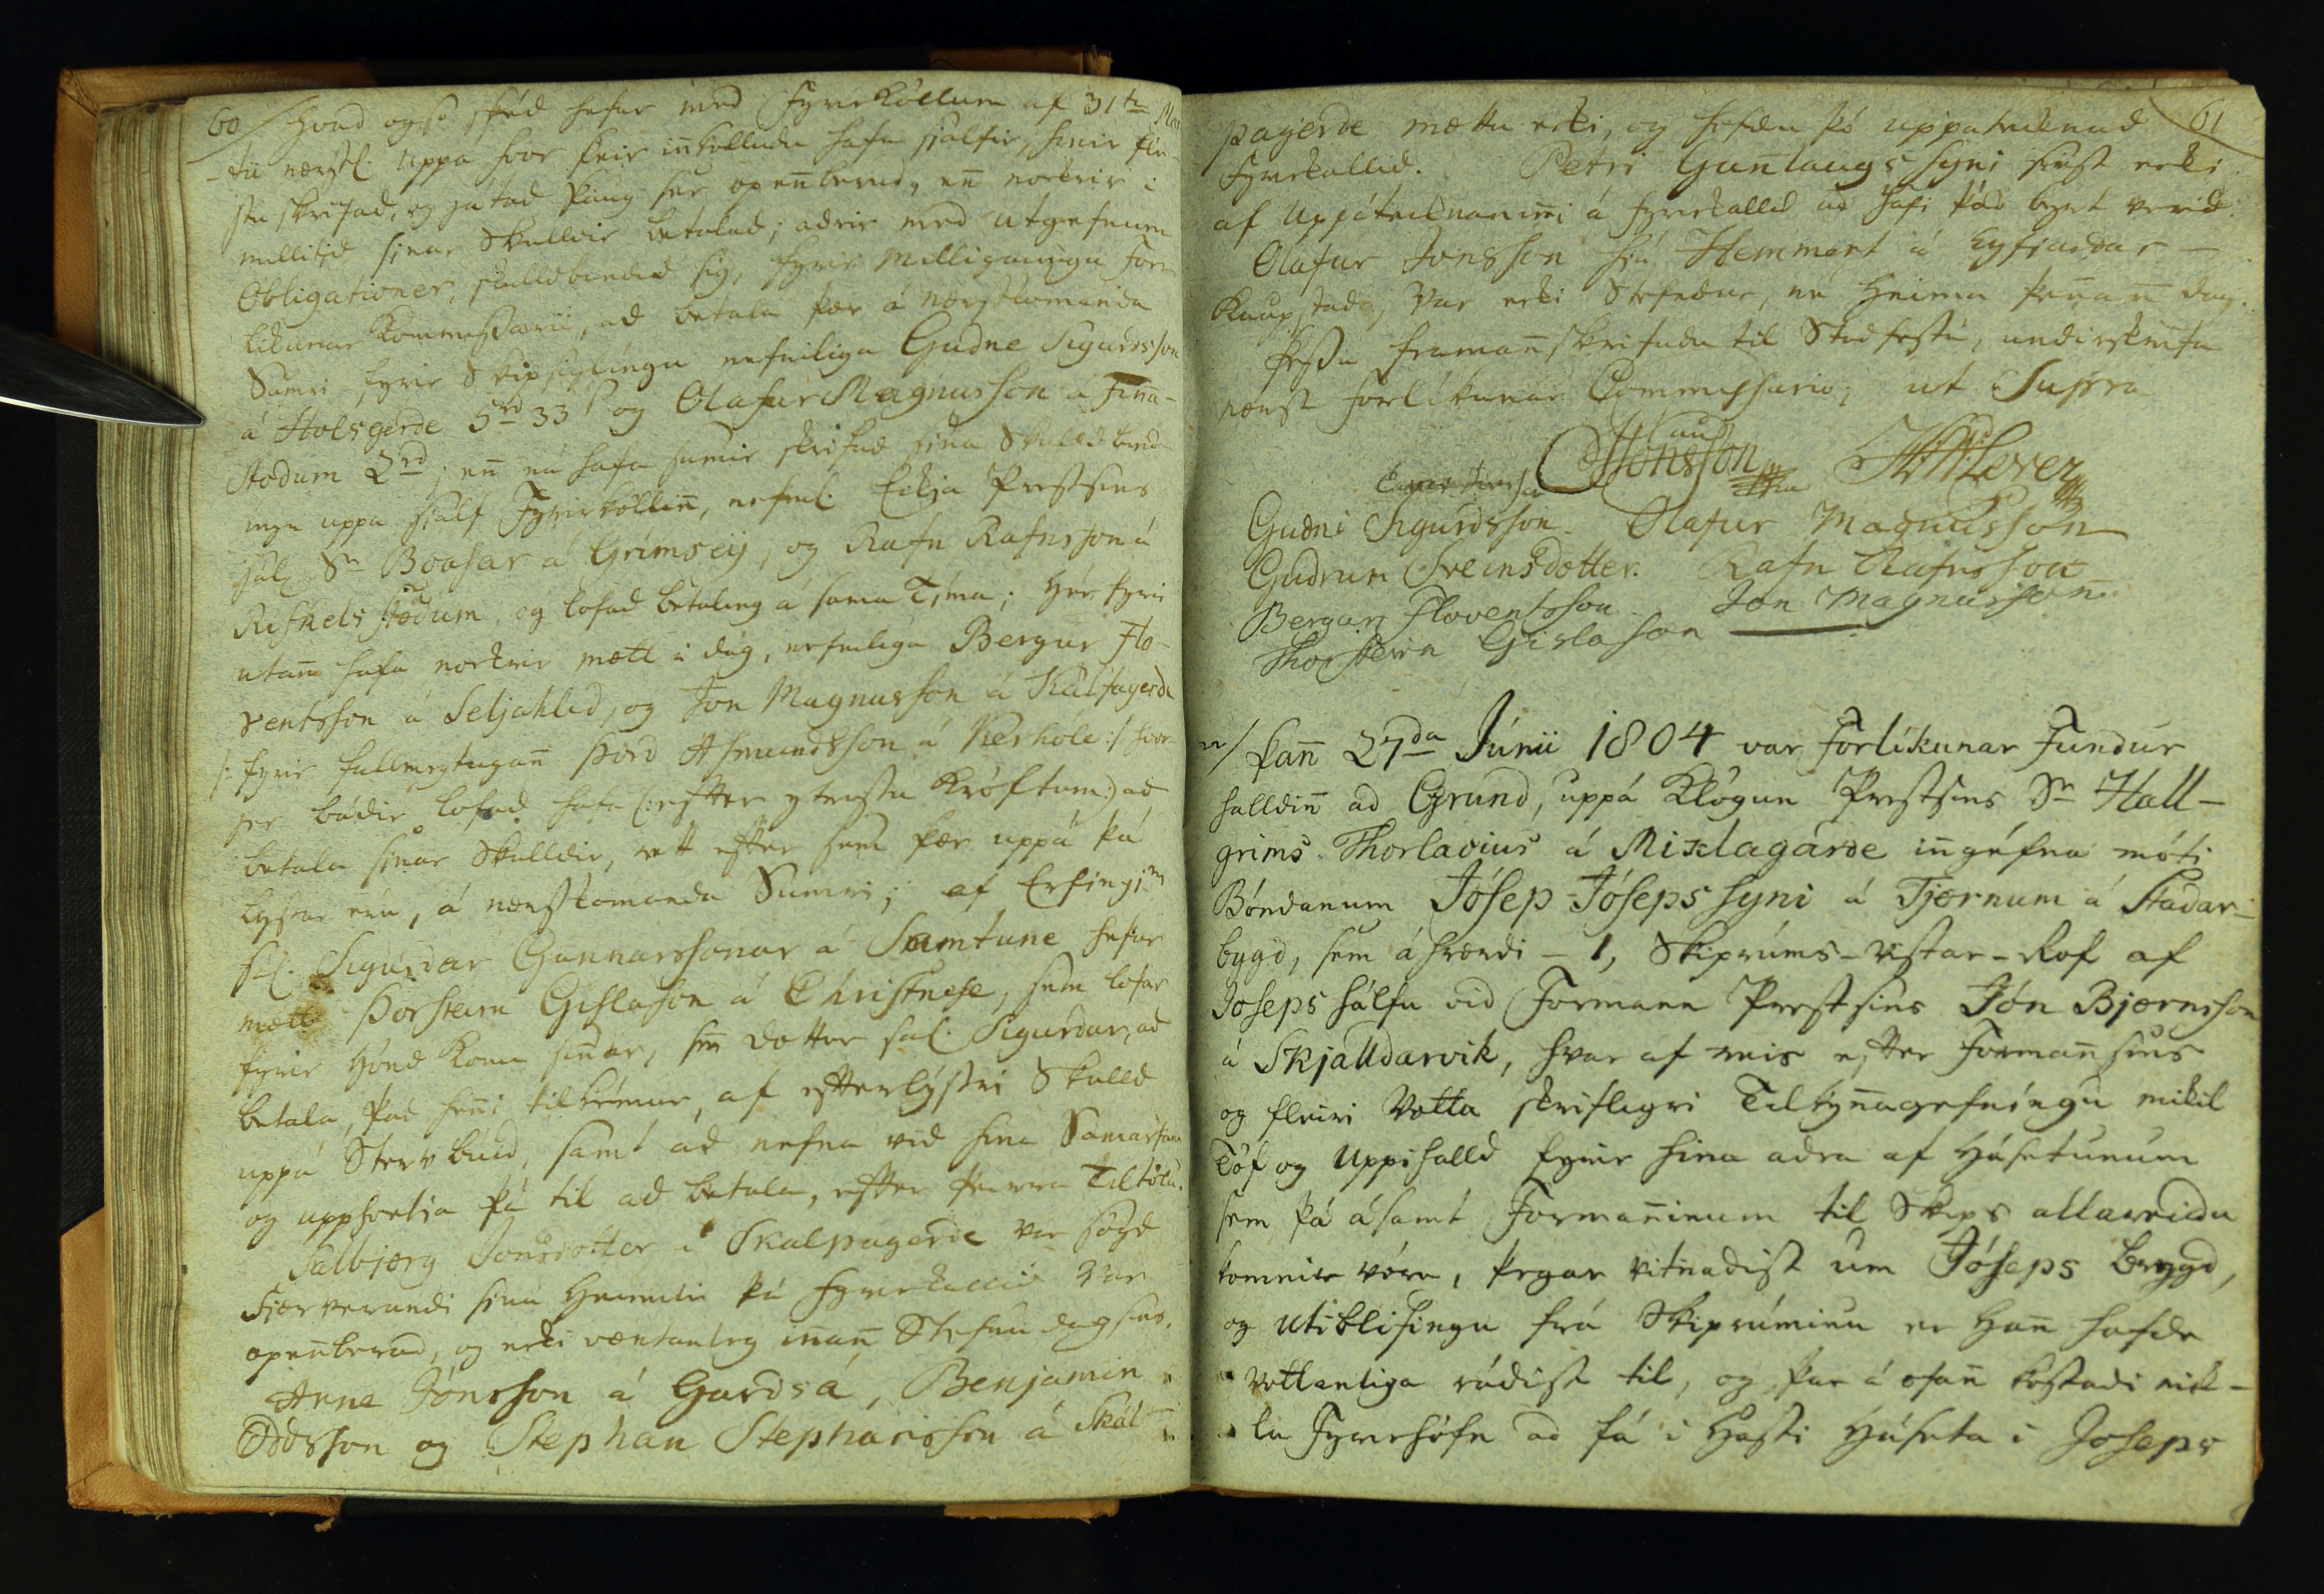 60/ hvad ogso skéd hefur med Fyrirköllum af 31te Mar
-tii næstl. uppá hvor þeir innkölludu hafa sjálfir, hinir fle-
stu skrifad, og játad þaug sér openberud, enn nockrir i
millitíd sínar Skulldir betalad; adrir med utgefnum
Obligationer, skulldbundid sig, fyrir milligaungu For-
likunar Kommissarii, ad betala þær á næstkomanda
Sumri fyrir Skipsiglingu nefniliga Gudne Sigurdsson
á Holsgerde 5rd 33s og Olafur Magnusson á Finna-
stodum 2rd; enn nú hafa sumir skrifad sína Skulldbind-
ingu uppá sjálf Fyrirköllin, nefnl. Eckja Prestsins
sál. Sr Boasar á Grimseij, og Rafn Rafnsson á
Rifkelsstødum og lofad betaling á sama Tíma; hér fyrir
utann hafa nockrir mætt i dag, nefniliga Bergur Flo-
ventsson á Seljahlid, og Jon Magnusson á Kálfagerde
/: fyrir fullmegtugann Þord Asmundsson á Kerhóle :/ hvor-
jer bádir lofad hafa (: efter ytrustu Kröftum :) ad
betala sínar Skulldir, rett efter sem þær uppá þá
lystar eru, á næstkomanda Sumri; af Erfingjum
sál. Sigurdar Gunnarssonar á Samtune hefur
mætt Þorsteirn Gislason á Christnese, sem lofar
fyrir hönd Konu sinnar, sem Dotter sál. Sigurdar, ad
betala, þad henni tilkémur, af efterlýstri Skulld
uppá Sterv buid, samt ad nefna vid hina Samarfana
og uppfordra þá til ad betala, efter þeirra Tiltölu.
Salbjørg Jonsdotter i Skalpagerde var sögd
Fjærverandi sínu Heimili þá Fyrirkallid var
openberad, og ecki væntanleg innann Stefnu dagsins.
Arne Jónsson á Gardsá, Benjamin
Oddsson og Stephan Stephansson á Skál-
61
pagerde mættu ecki, og hofdu þó uppáteiknad
Fyrirkallid. Petri Gunlaugssyni sést ecki
af Uppáteiknaninni á Fyrirkallid ad hafi þad byrt verid.
Olafur Jonsson hjá Hemmert á Eyfjardar-
Kaupstad, var ecki Stefndur, né heima þennann dag.
Þessu framannskrifudu til Stadfestu, undirskrifa
næst Forlíkunar Commissario, ut Supra
Jonsson
Gudni Sigurdsson Olafur Magnusson
Gudrun Sveinsdotter. Rafn Rafnsson
Bergur Floventsson Jon Magnusson
Thorsteirn Gislason
Þann 27da Júnii 1804 var Forlíkunar Fundur
halldinn ad Grund, uppá Klögun Prestsins Sr Hall-
grims Thorlacius á Miklagarde inngéfna móti
Bóndanum Jósep Jósepssyni á Tjørnum á Stadar-
bygd, sem áhrærdi - 1, Skiprúms-vistar-Rof af
Joseps hálfu vid Formann Prestsins Jón Bjørnsson
á Skjalldarvik, hvar af reis efter Formannsins
og fleiri Votta skriflegri Tilkynnagefningu mikil
Töf og Uppihalld fyrir hina adra af Hásetunum
sem þá ásamt Formanninum til Skips allareidu
komnir vóru, þegar vitnadist um Jóseps Brygd,
og Utiblifingu frá Skiprúminu er Hann hafde
vottanliga rádist til, og þar á ofann kostadi mik-
la Fyrirhöfn ad fá i Hasti Háseta i Joseps